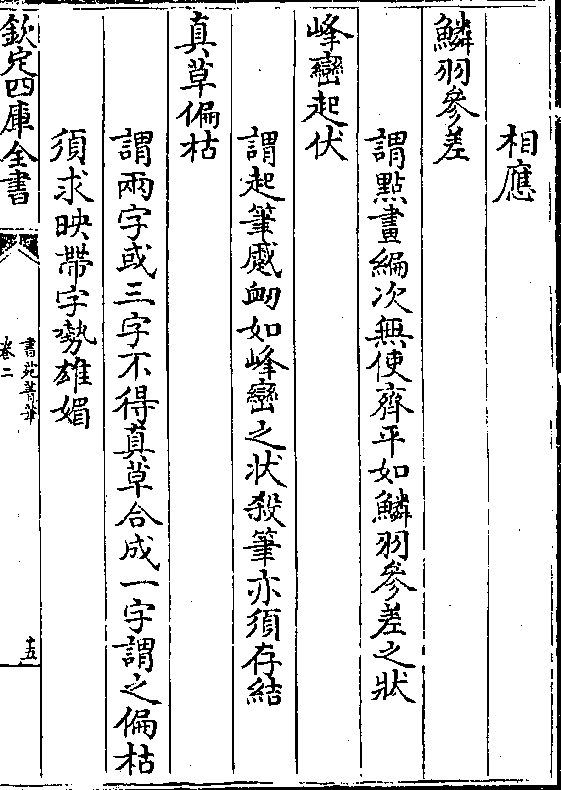 相應
鱗羽參差
謂點畫編次無使齊平如鱗羽參差之狀
峰巒起伏
謂起筆蹙衂如峰巒之状殺筆亦須存結
真草偏枯
謂兩字或三字不得真草合成一字謂之偏枯
須求映帶字勢雄媚
欽定四庫全書
書苑菁華
卷二
十五